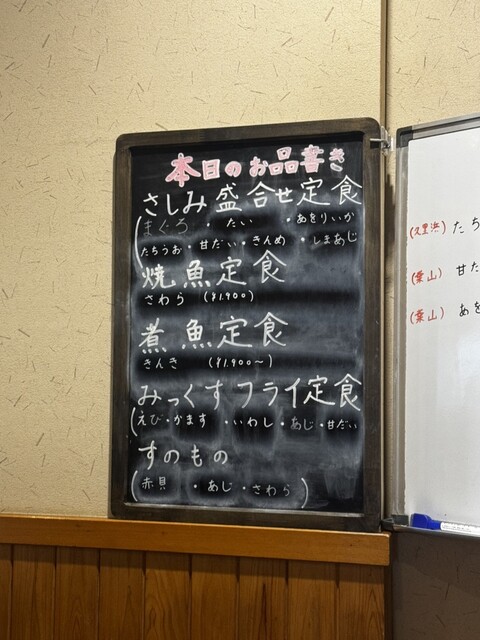 本日のお品書き
さしみ盛合せ定食
(まぐろ・たい・あをりいか
たちうお・甘だい・きんめ・しまあじ
焼魚定食
さわら (¥1,900)
煮魚定食
きんき (¥1,900~)
みっくすフライ定食
(えび・かます・いわし・あじ・甘だい
すのもの
(赤貝・あじ・さわら)
(久里浜) たち
(葉山) 甘だ
(葉山) あを